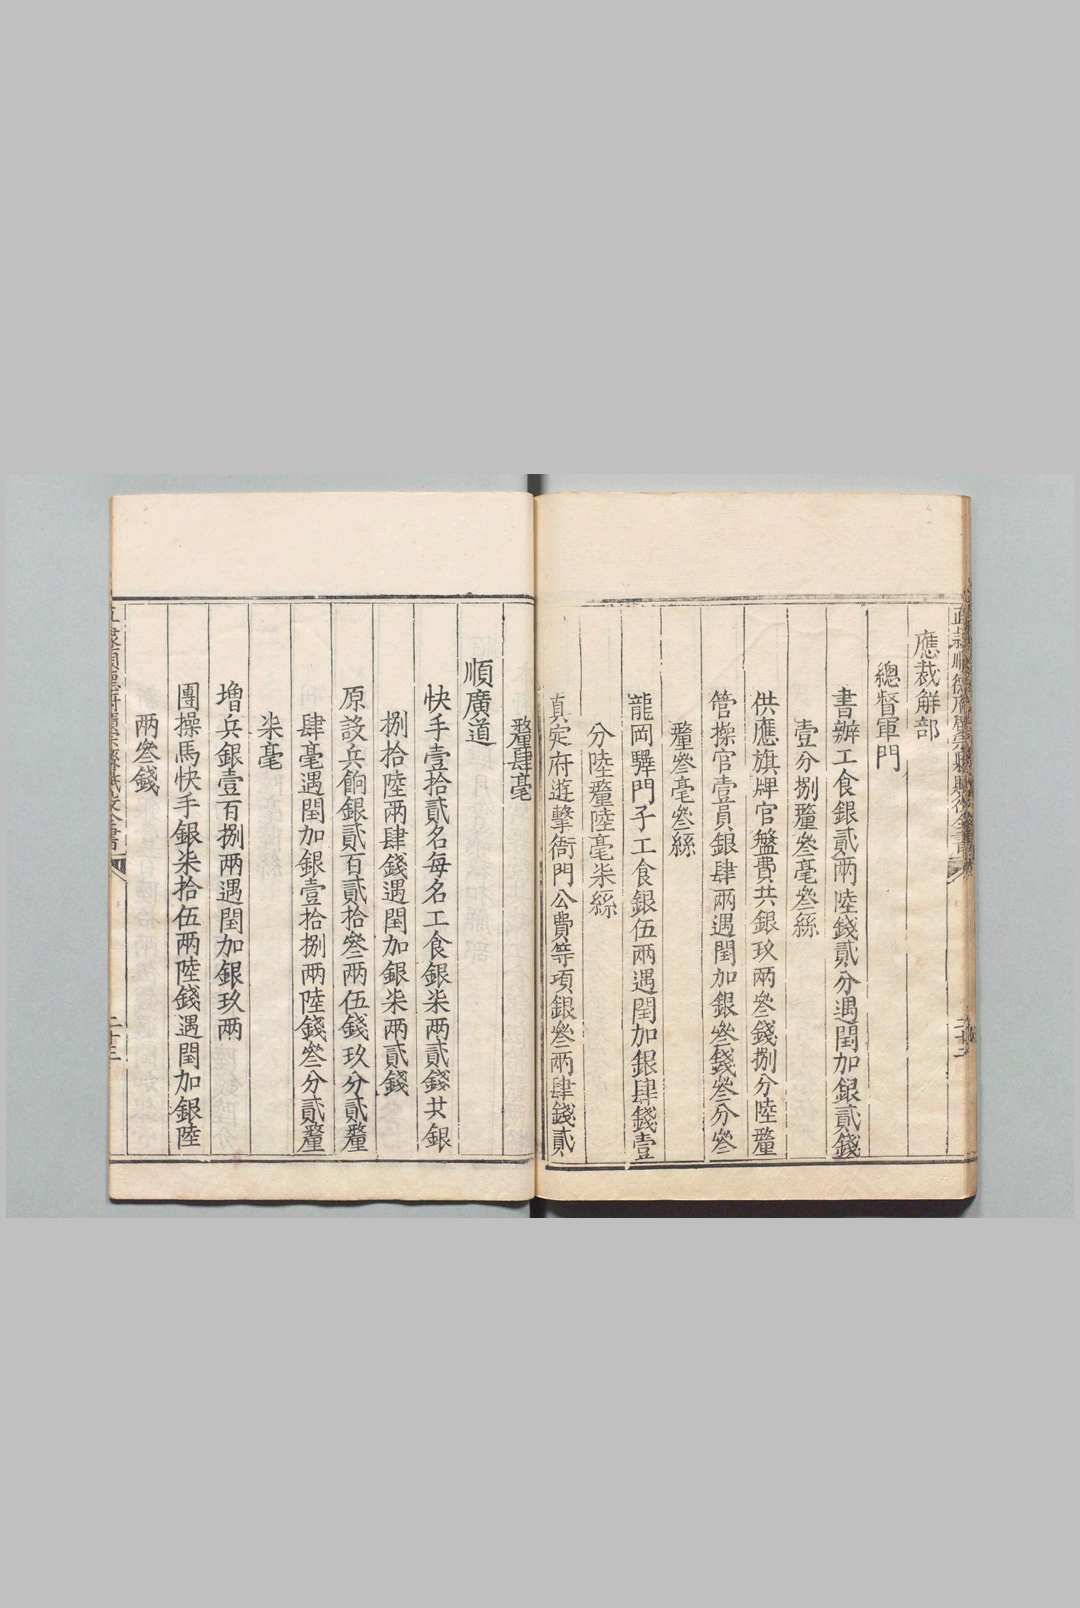 應裁解部
總督軍門
書辦工食銀貳兩陸錢貳分遇閏加銀貳錢
壹分捌釐叄毫叄絲
供應旗牌官盤費共銀玖兩叄錢捌分陸釐
管操官壹員銀肆兩遇閏加銀叄錢叄分叄
釐叄毫叄絲
龍岡驛門子工食銀伍兩遇閏加銀肆錢壹
分陸釐陸毫柒絲
真定府遊擊衙門公費等項銀叄兩肆錢貳
釐肆毫
順廣道
快手壹拾貳名每名工食銀柒兩貳錢共銀
捌拾陸兩肆錢遇閏加銀柒兩貳錢
原設兵餉銀貳百貳拾叄兩伍錢玖分貳釐
肆毫遇閏加銀壹拾捌兩陸錢叄分貳釐
柒毫
增兵銀壹百捌兩遇閏加銀玖兩
團操馬快手銀柒拾伍兩陸錢遇閏加銀陸
兩叄錢
二十三